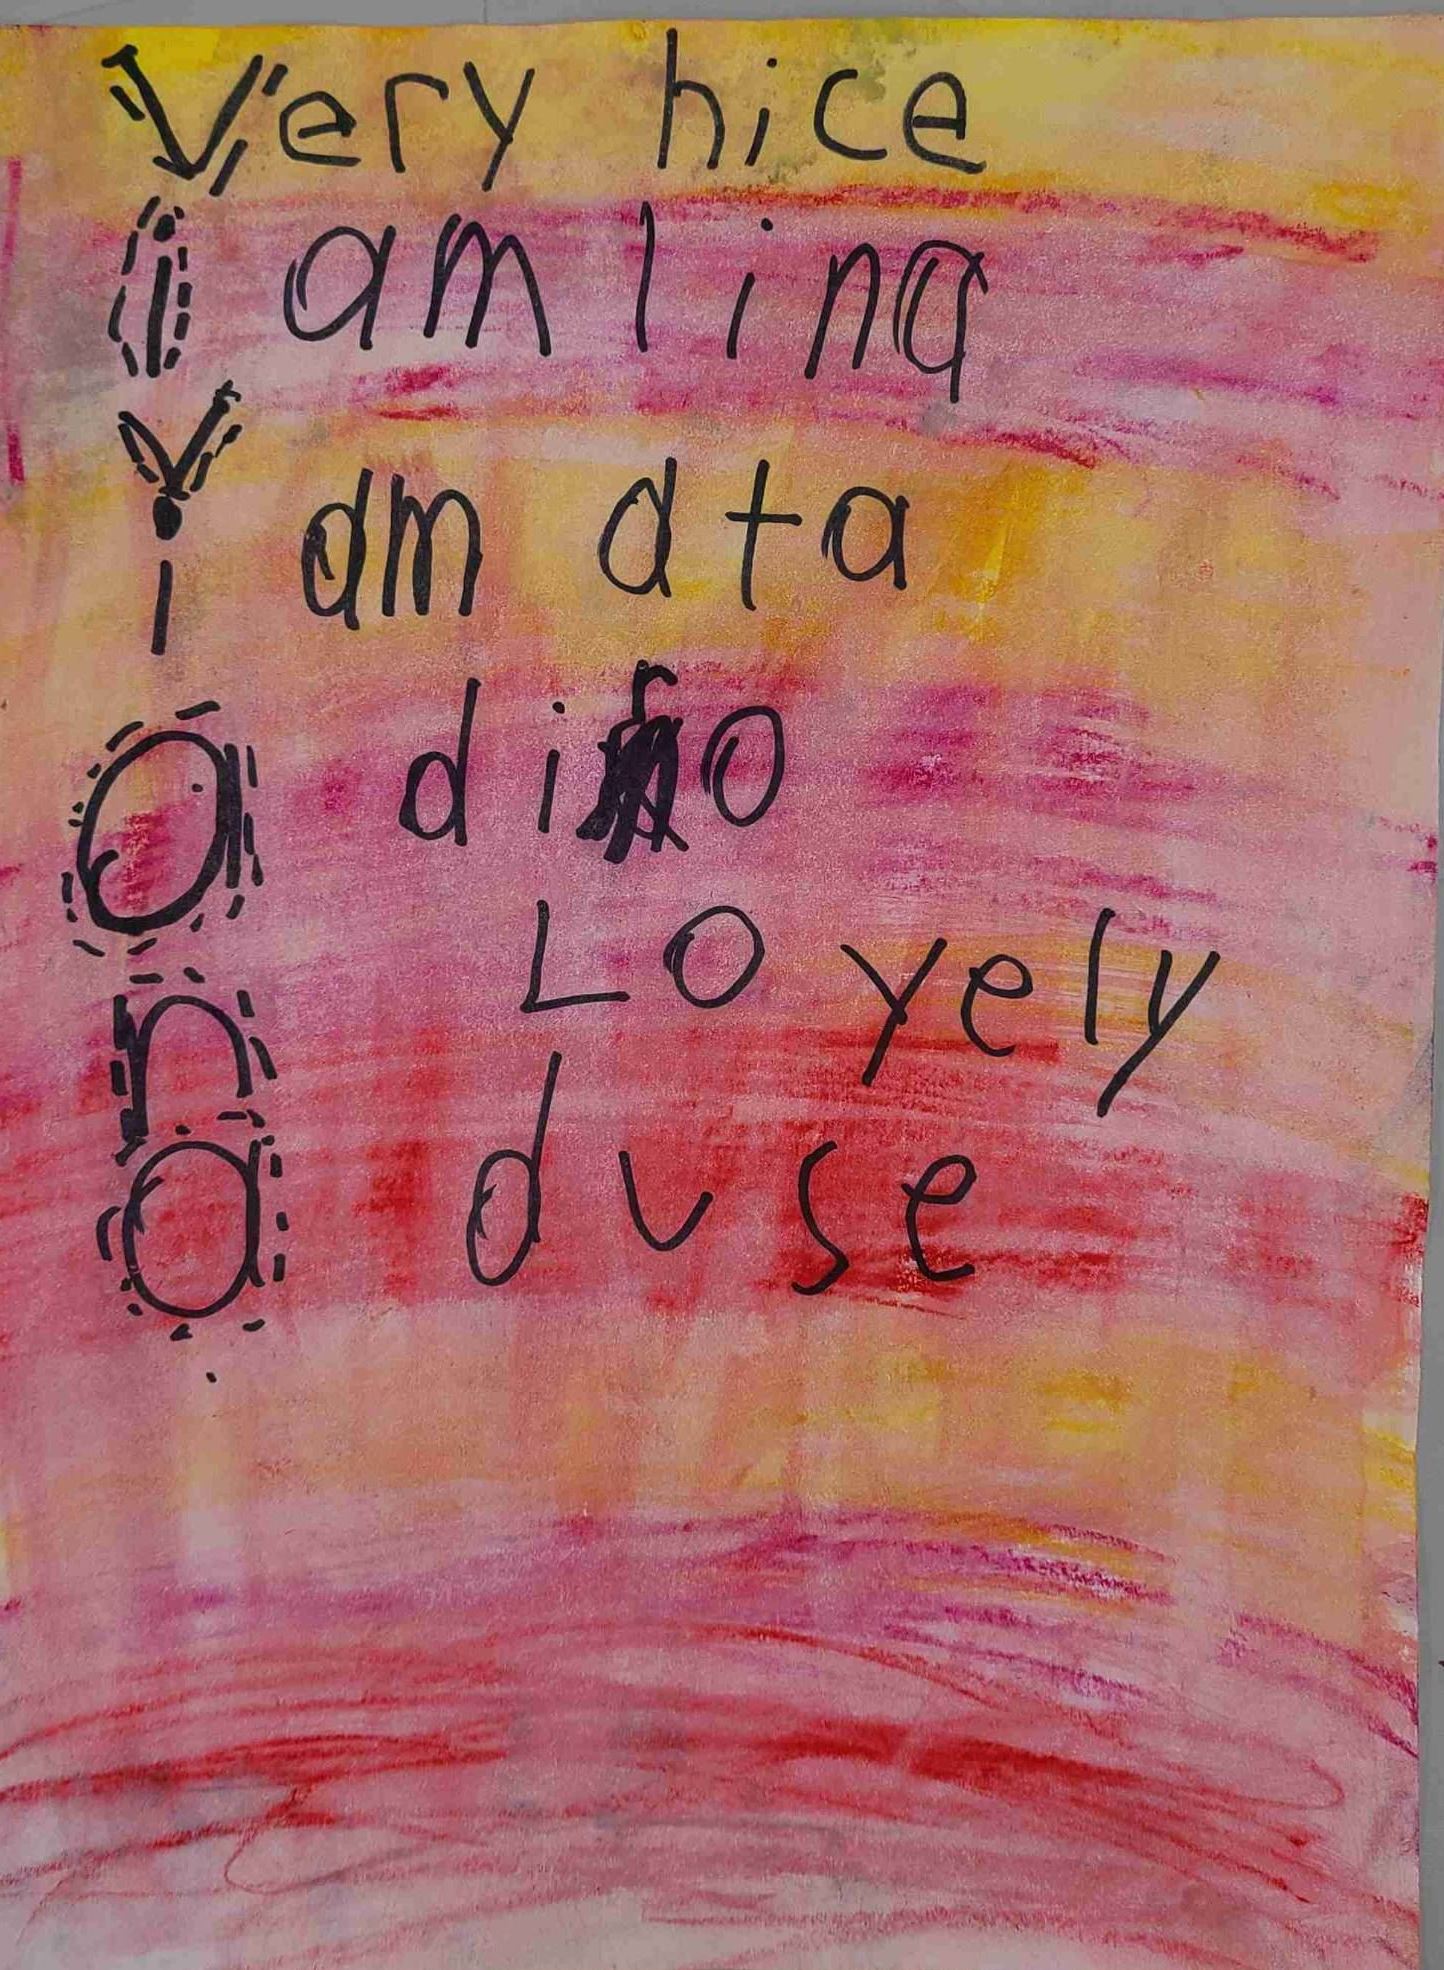 Very nice
i am lina
Y i am ata
a dino
n Lovely
a duse